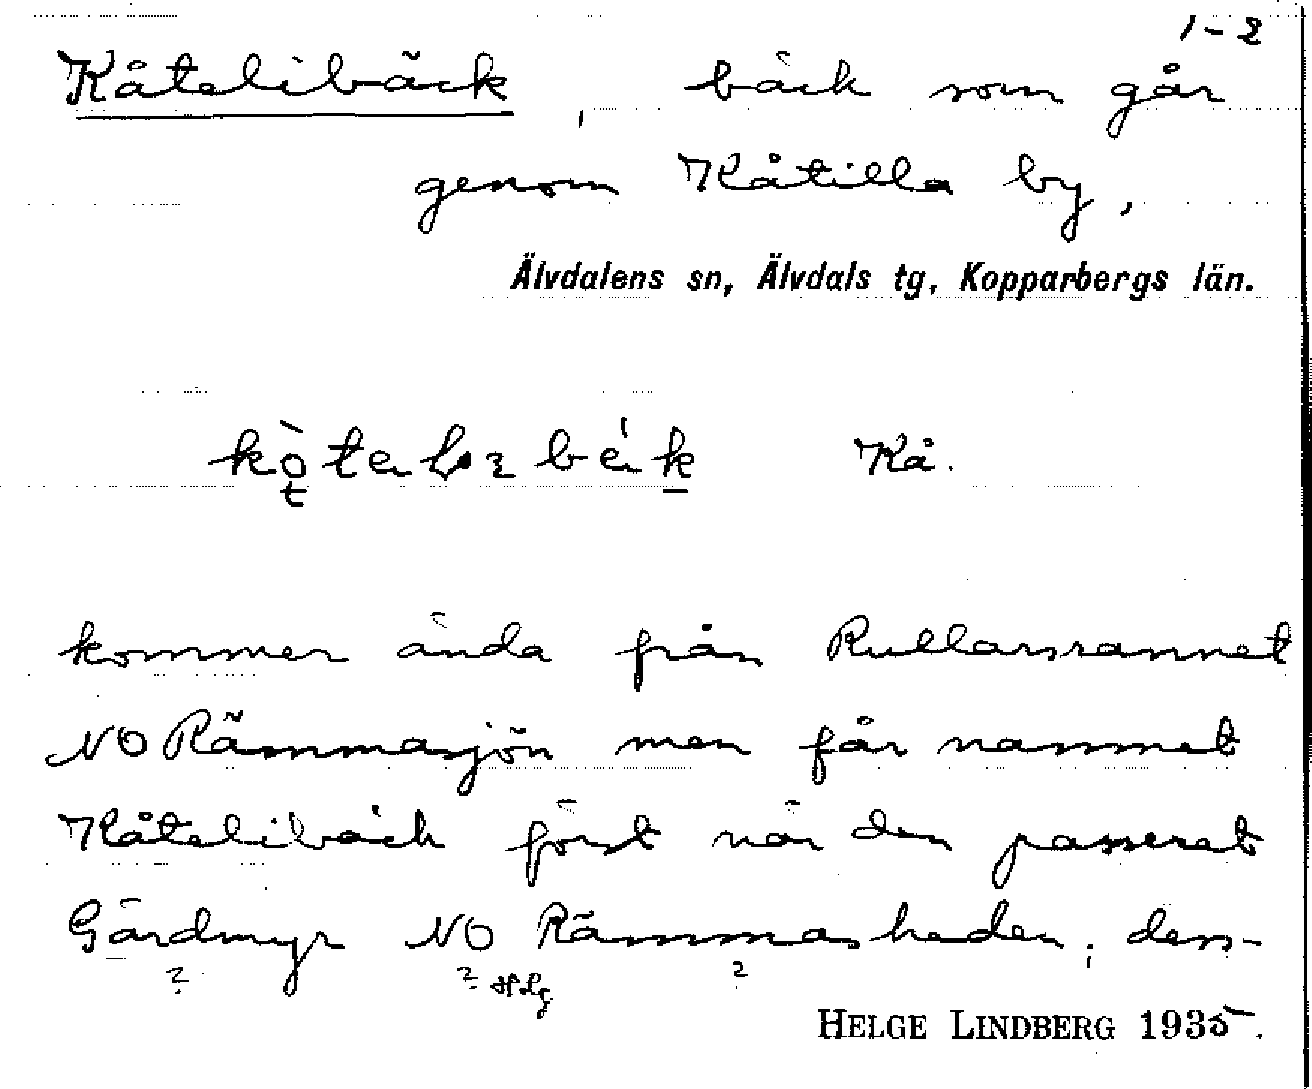 1-2
Kåtelibäck, bäck som går
genom Kåtilla by,
Älvdalens sn, Älvdals tg, Kopparbergs län.
Kå.
kommer ända från Rullarsrannet
NO Rämmasjön men får namnet
Kåtelibäck först när den passerat
Gärdmyr NO Rämmasheden; dess-
? ? HLg ?
HELGE LINDBERG 1935.